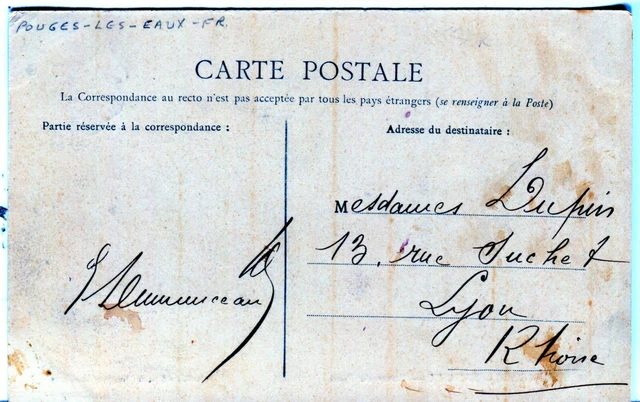 POUGES-LES-EAUX-FR.
CARTE POSTALE
La Correspondance au recto n'est pas acceptée par tous les pays étrangers (se renseigner à la Poste)
Partie réservée à la correspondance :
Adresse du destinataire :
Mesdames Dupin
13, rue Suchet
Lyon
Rhône